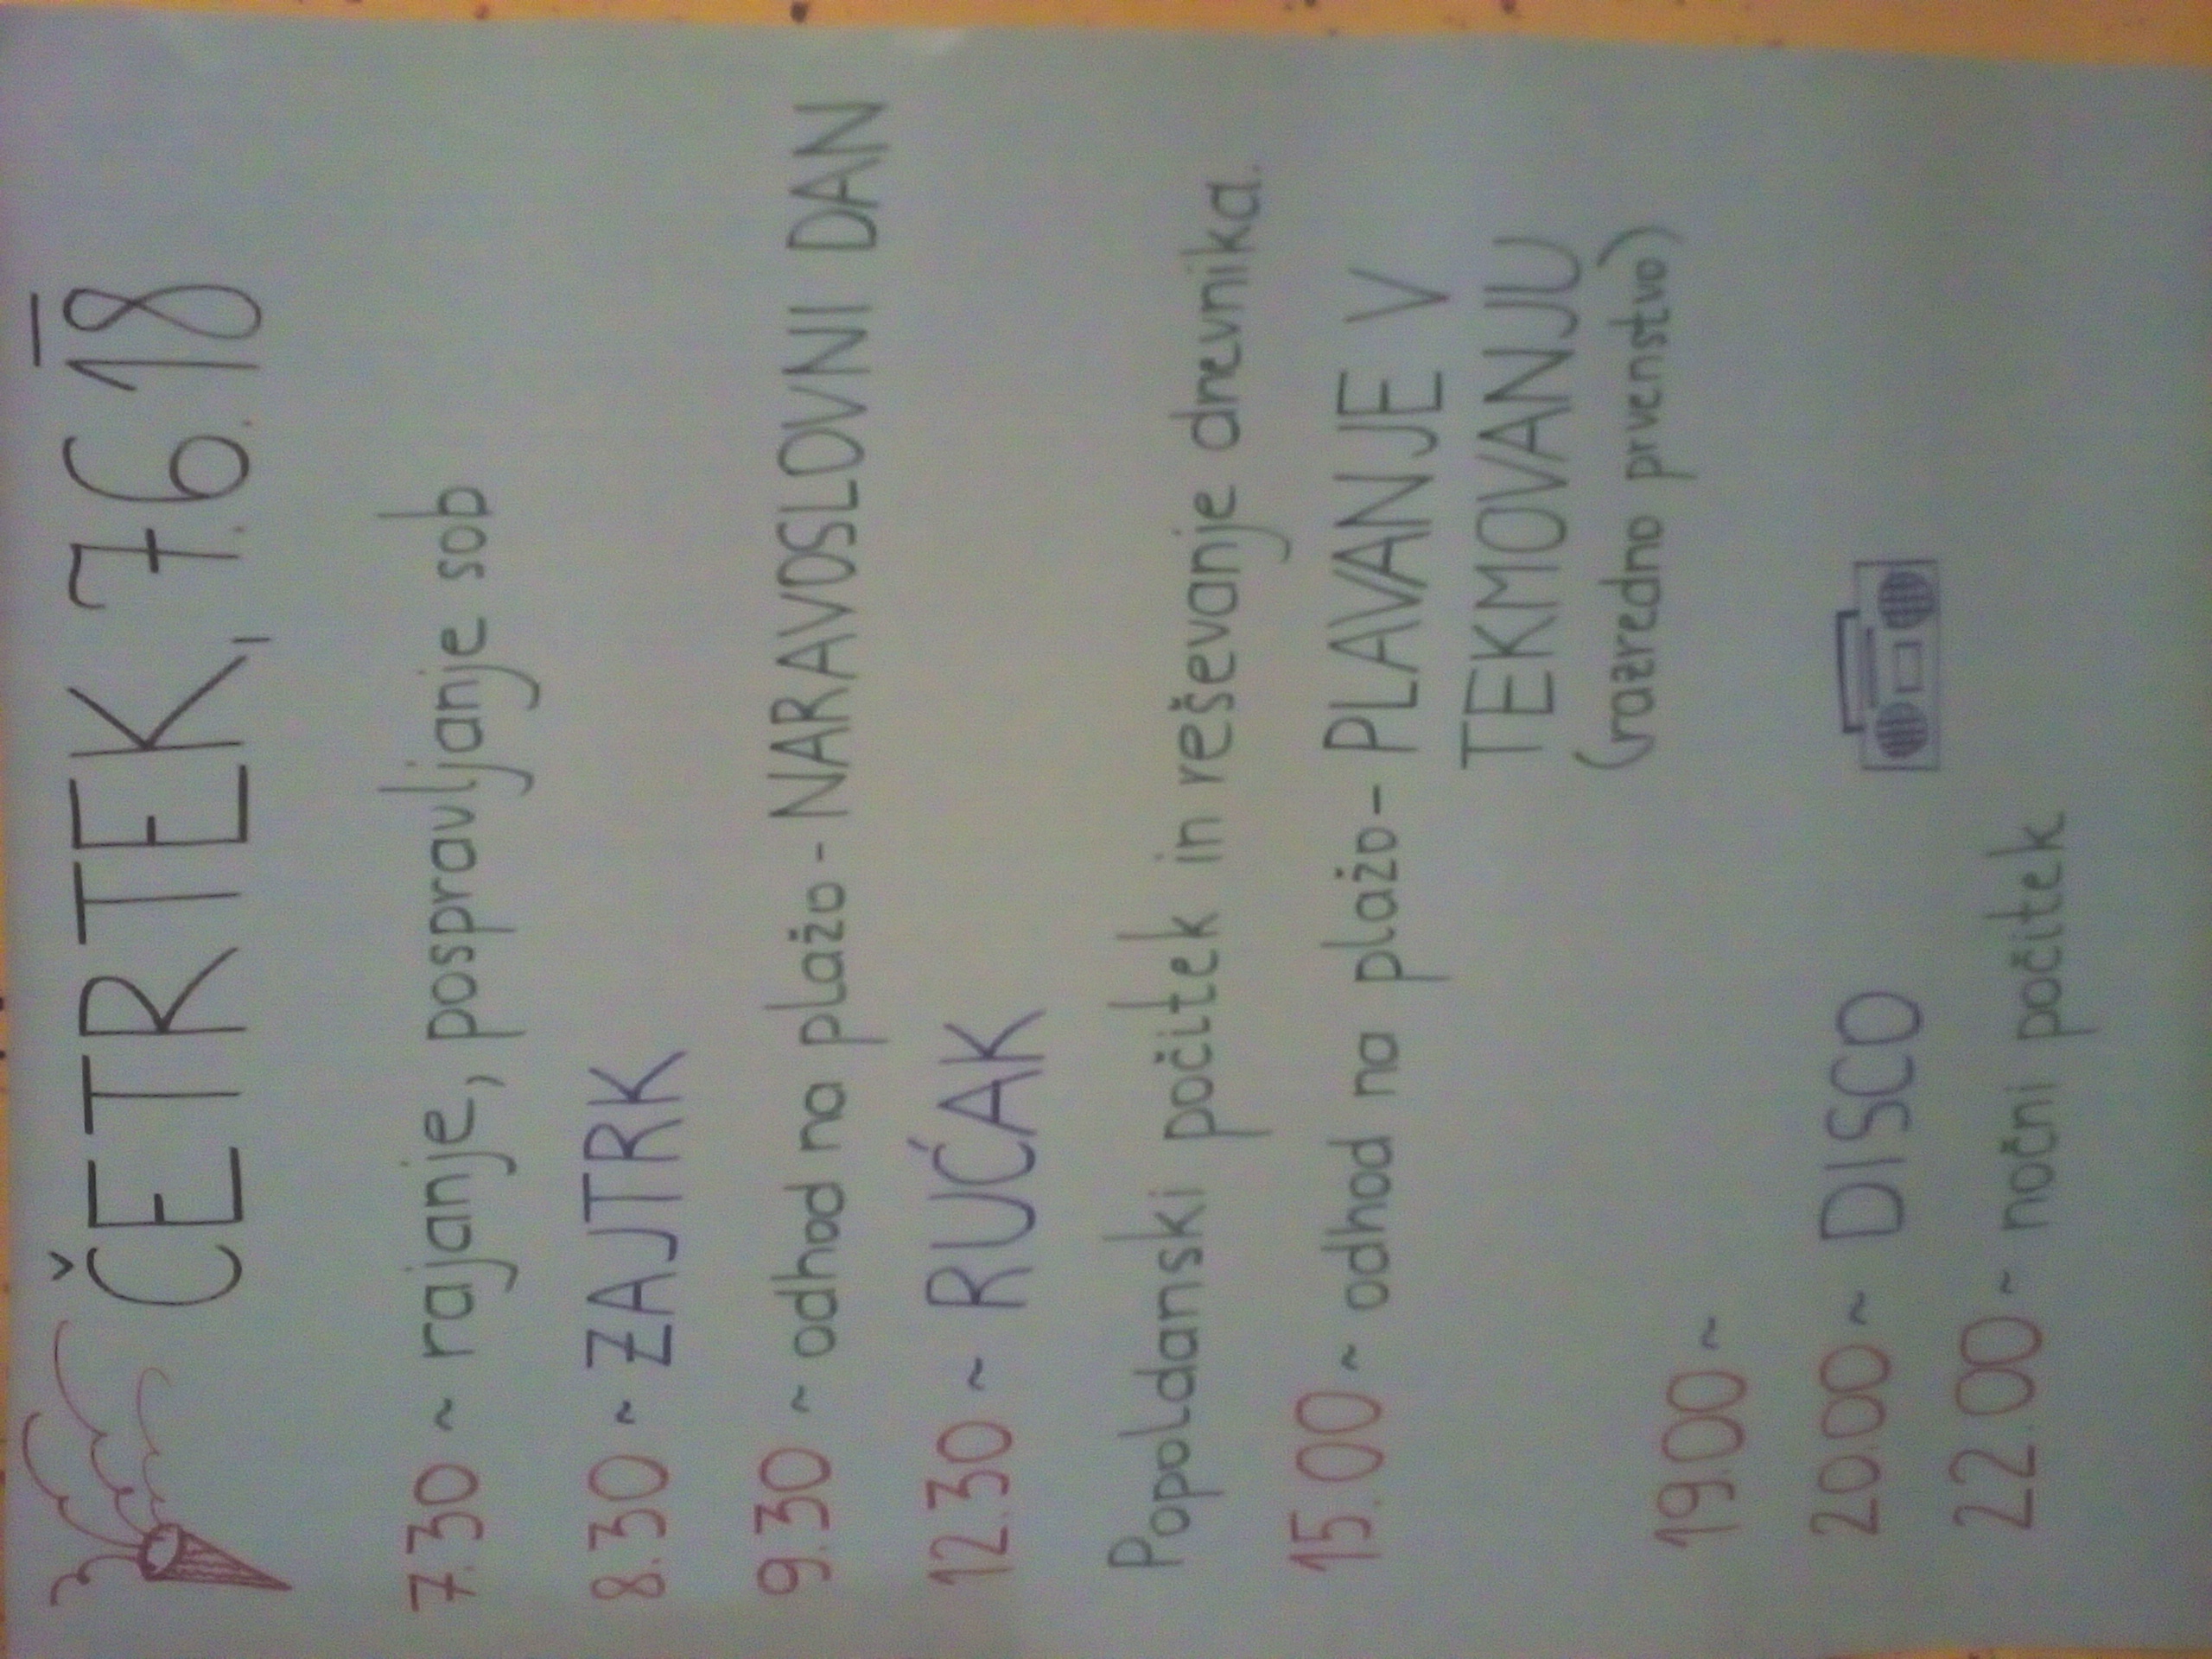 ČETRTEK, 7.6.18
7.30 ~ rajanje, pospravljanje sob
8.30 ~ ZAJTRK
9.30 ~ odhod na plažo - NARAVOSLOVNI DAN
12.30 ~ RUĆAK
Popoldanski počitek in reševanje dnevnika.
15.00 ~ odhod na plažo - PLAVANJE V
TEKMOVANJU
(razredno prvenstvo)
19.00 ~
20.00 ~ DISCO
22.00 ~ nočni počitek